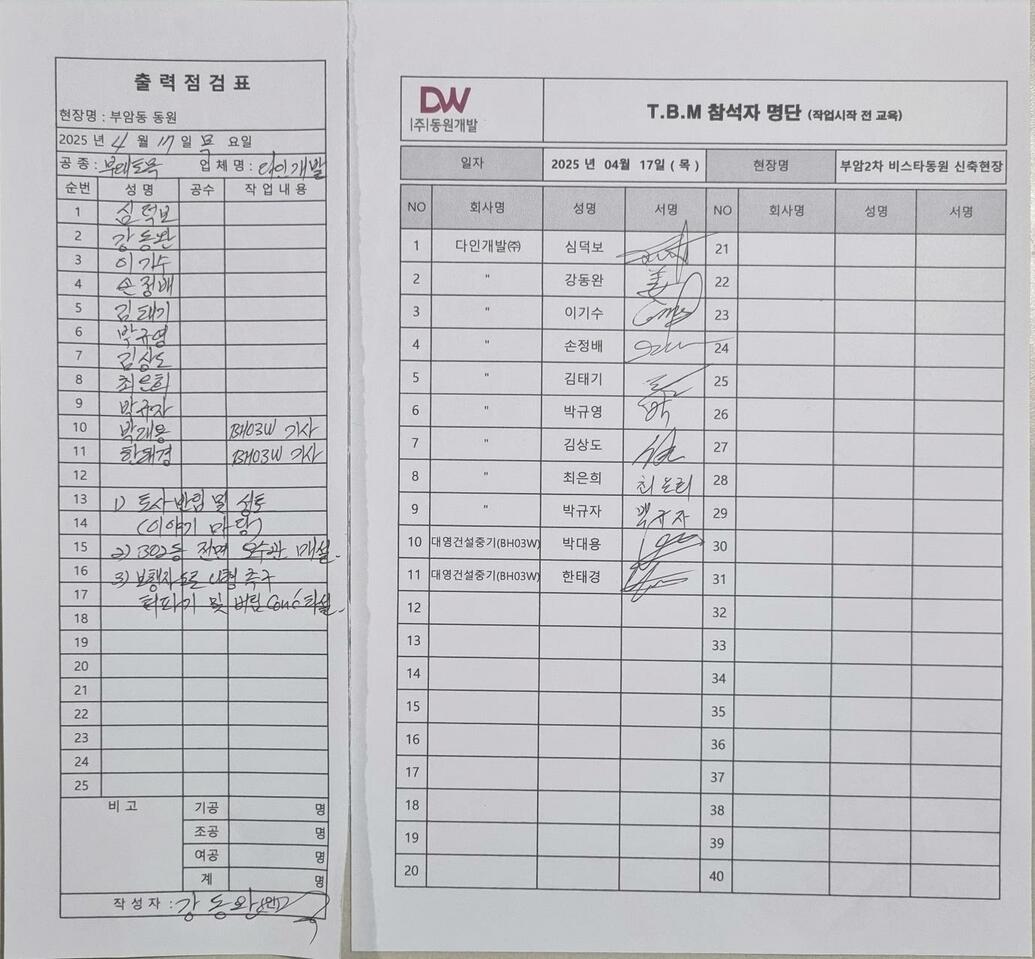 출력점검표
현장명 : 부암동 동원
2025 년 4 월 17 일 목 요일
공종 : 부대토목 업체명 : 다인개발
순번 성명 공수 작업내용
1 심덕보
2 강동완
3 이기수
4 손정배
5 김태기
6 박규영
7 김상도
8 최은희
9 박규자
10 박대용 BH03W 기사
11 한태경 BH03W 기사
12
13 1) 토사반입 및 성토
14 (이야기 마당)
15 2) B02동 전면 오수관 매설.
16 3) 보행자도로 시형 축구
17 터파기 및 버림 Con'c 타설.
18
19
20
21
22
23
24
25
비고 기공 명
조공 명
여공 명
계 명
작성자 : 강동완
DW
(주)동원개발
T.B.M 참석자 명단 (작업시작 전 교육)
일자 2025 년 04월 17일 ( 목 ) 현장명 부암2차 비스타동원 신축현장
NO 회사명 성명 서명 NO 회사명 성명 서명
1 다인개발㈜ 심덕보 21
2 " 강동완 姜 22
3 " 이기수 23
4 " 손정배 24
5 " 김태기 25
6 " 박규영 박 26
7 " 김상도 27
8 " 최은희 최은희 28
9 " 박규자 박규자 29
10 대영건설중기(BH03W) 박대용 30
11 대영건설중기(BH03W) 한태경 31
12 32
13 33
14 34
15 35
16 36
17 37
18 38
19 39
20 40